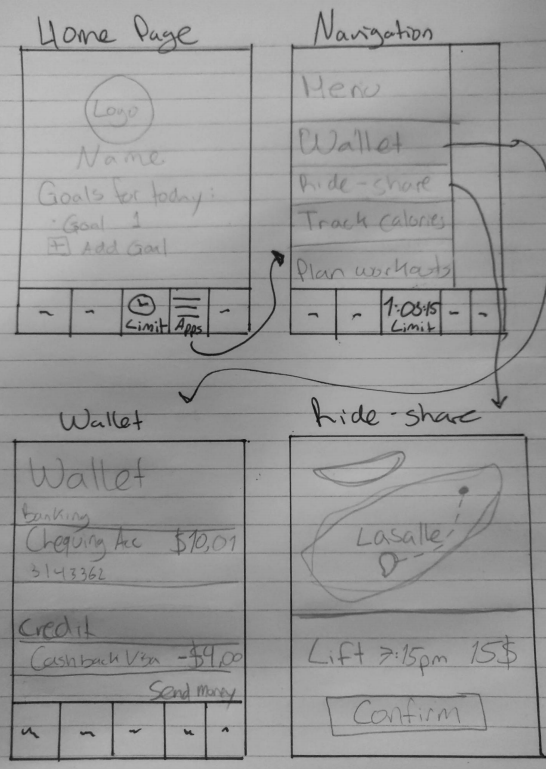 Home Page
Logo
Name
Goals for today:
- Goal 1
+ Add Goal
Limit
Apps
Navigation
Menu
Wallet
Ride-share
Track calories
Plan workouts
1:03:15
Limit
Wallet
Wallet
Banking
Chequing Acc $10,01
3143362
Credit
Cashback Visa -$4,00
Send money
Ride-share
Lasalle
Lift 7:15pm 15$
Confirm